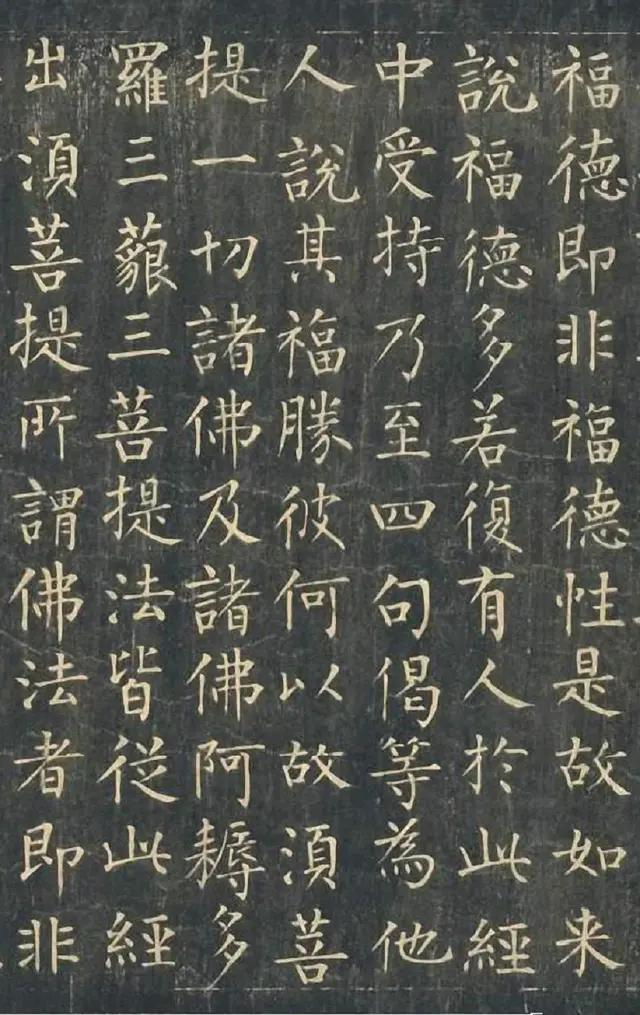 福德即非福德性是故如来
說福德多若復有人於此經
中受持乃至四句偈等為他
人說其福勝彼何以故湏菩
提一切諸佛及諸佛阿耨多
羅三藐三菩提法皆從此經
出湏菩提所謂佛法者即非